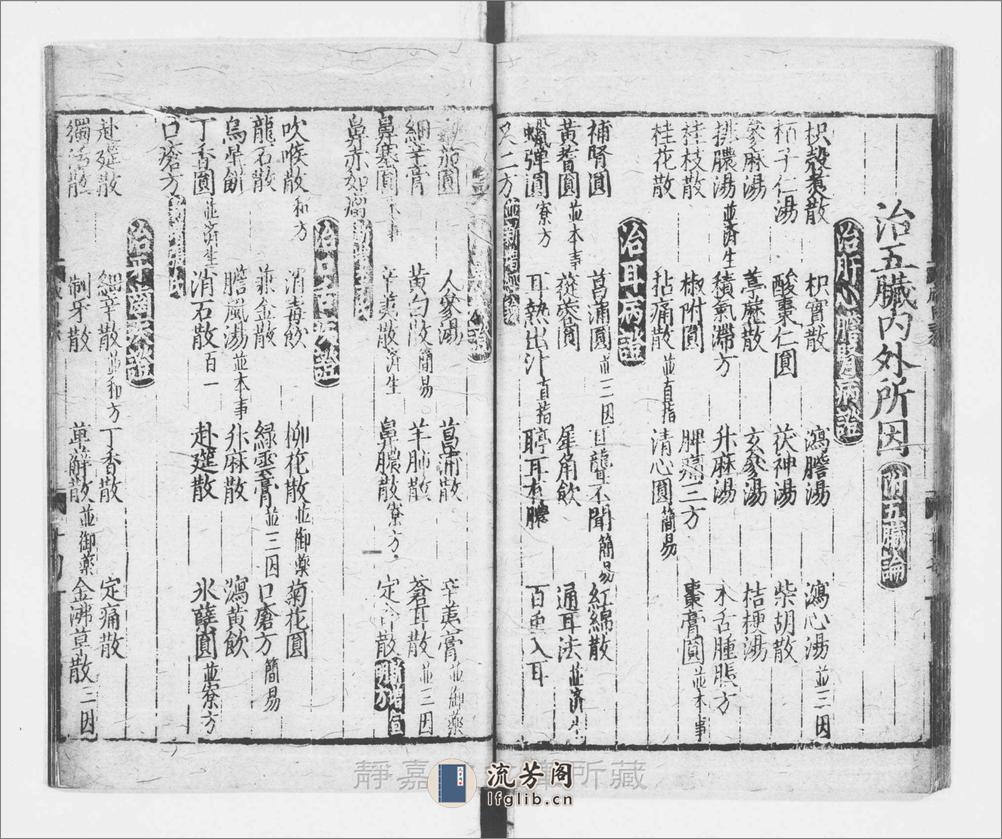 治五臟內外所因 附五臟論
治肝心膽腎病證
枳殼煮散 枳實散 瀉膽湯 瀉心湯並三因
柏子仁湯 酸棗仁圓 茯神湯 柴胡散
麥麻湯 蕁麻散 玄參湯 桔梗湯
排膿湯並済生 積氣滯方 升麻湯 木舌腫脹方
桂枝散 椒附圓 脾 二方 棗膏圓並本事
桂花散 拈痛散並直指 清心圓簡易
治耳病證
補腎圓 菖蒲圓並三因 耳聾不聞簡易 紅綿散
黃耆圓並本事 蓯蓉圓 犀角飲 通耳法並済生
蠟彈圓寮方 耳熱出汁直指 聤耳有膿 百虫入耳
又二方
人參湯 菖 散 辛荑膏並御藥
細辛膏 黃勻散簡易 羊肺散 蒼耳散並三因
鼻塞圓本事 辛荑散済生 鼻膿散寮方 定 散
鼻赤如瘤
治口舌病證
吹喉散和方 消毒飲 柳花散並御藥 菊花圓
龍石散 兼金散 綠雲膏並三因 口瘡方簡易
烏犀餅 膽風湯並本事 升麻散 瀉黃飲
丁香圓並済生 消石散百一 赴筵散 水蘖圓並寮方
口瘡方
治牙齒病證
赴筵散 細辛散並和方 丁香散 定痛散
獨活散 制牙散 草薢散並御藥 金沸草散三因
靜嘉 所藏
流芳阁
lfglib.cn